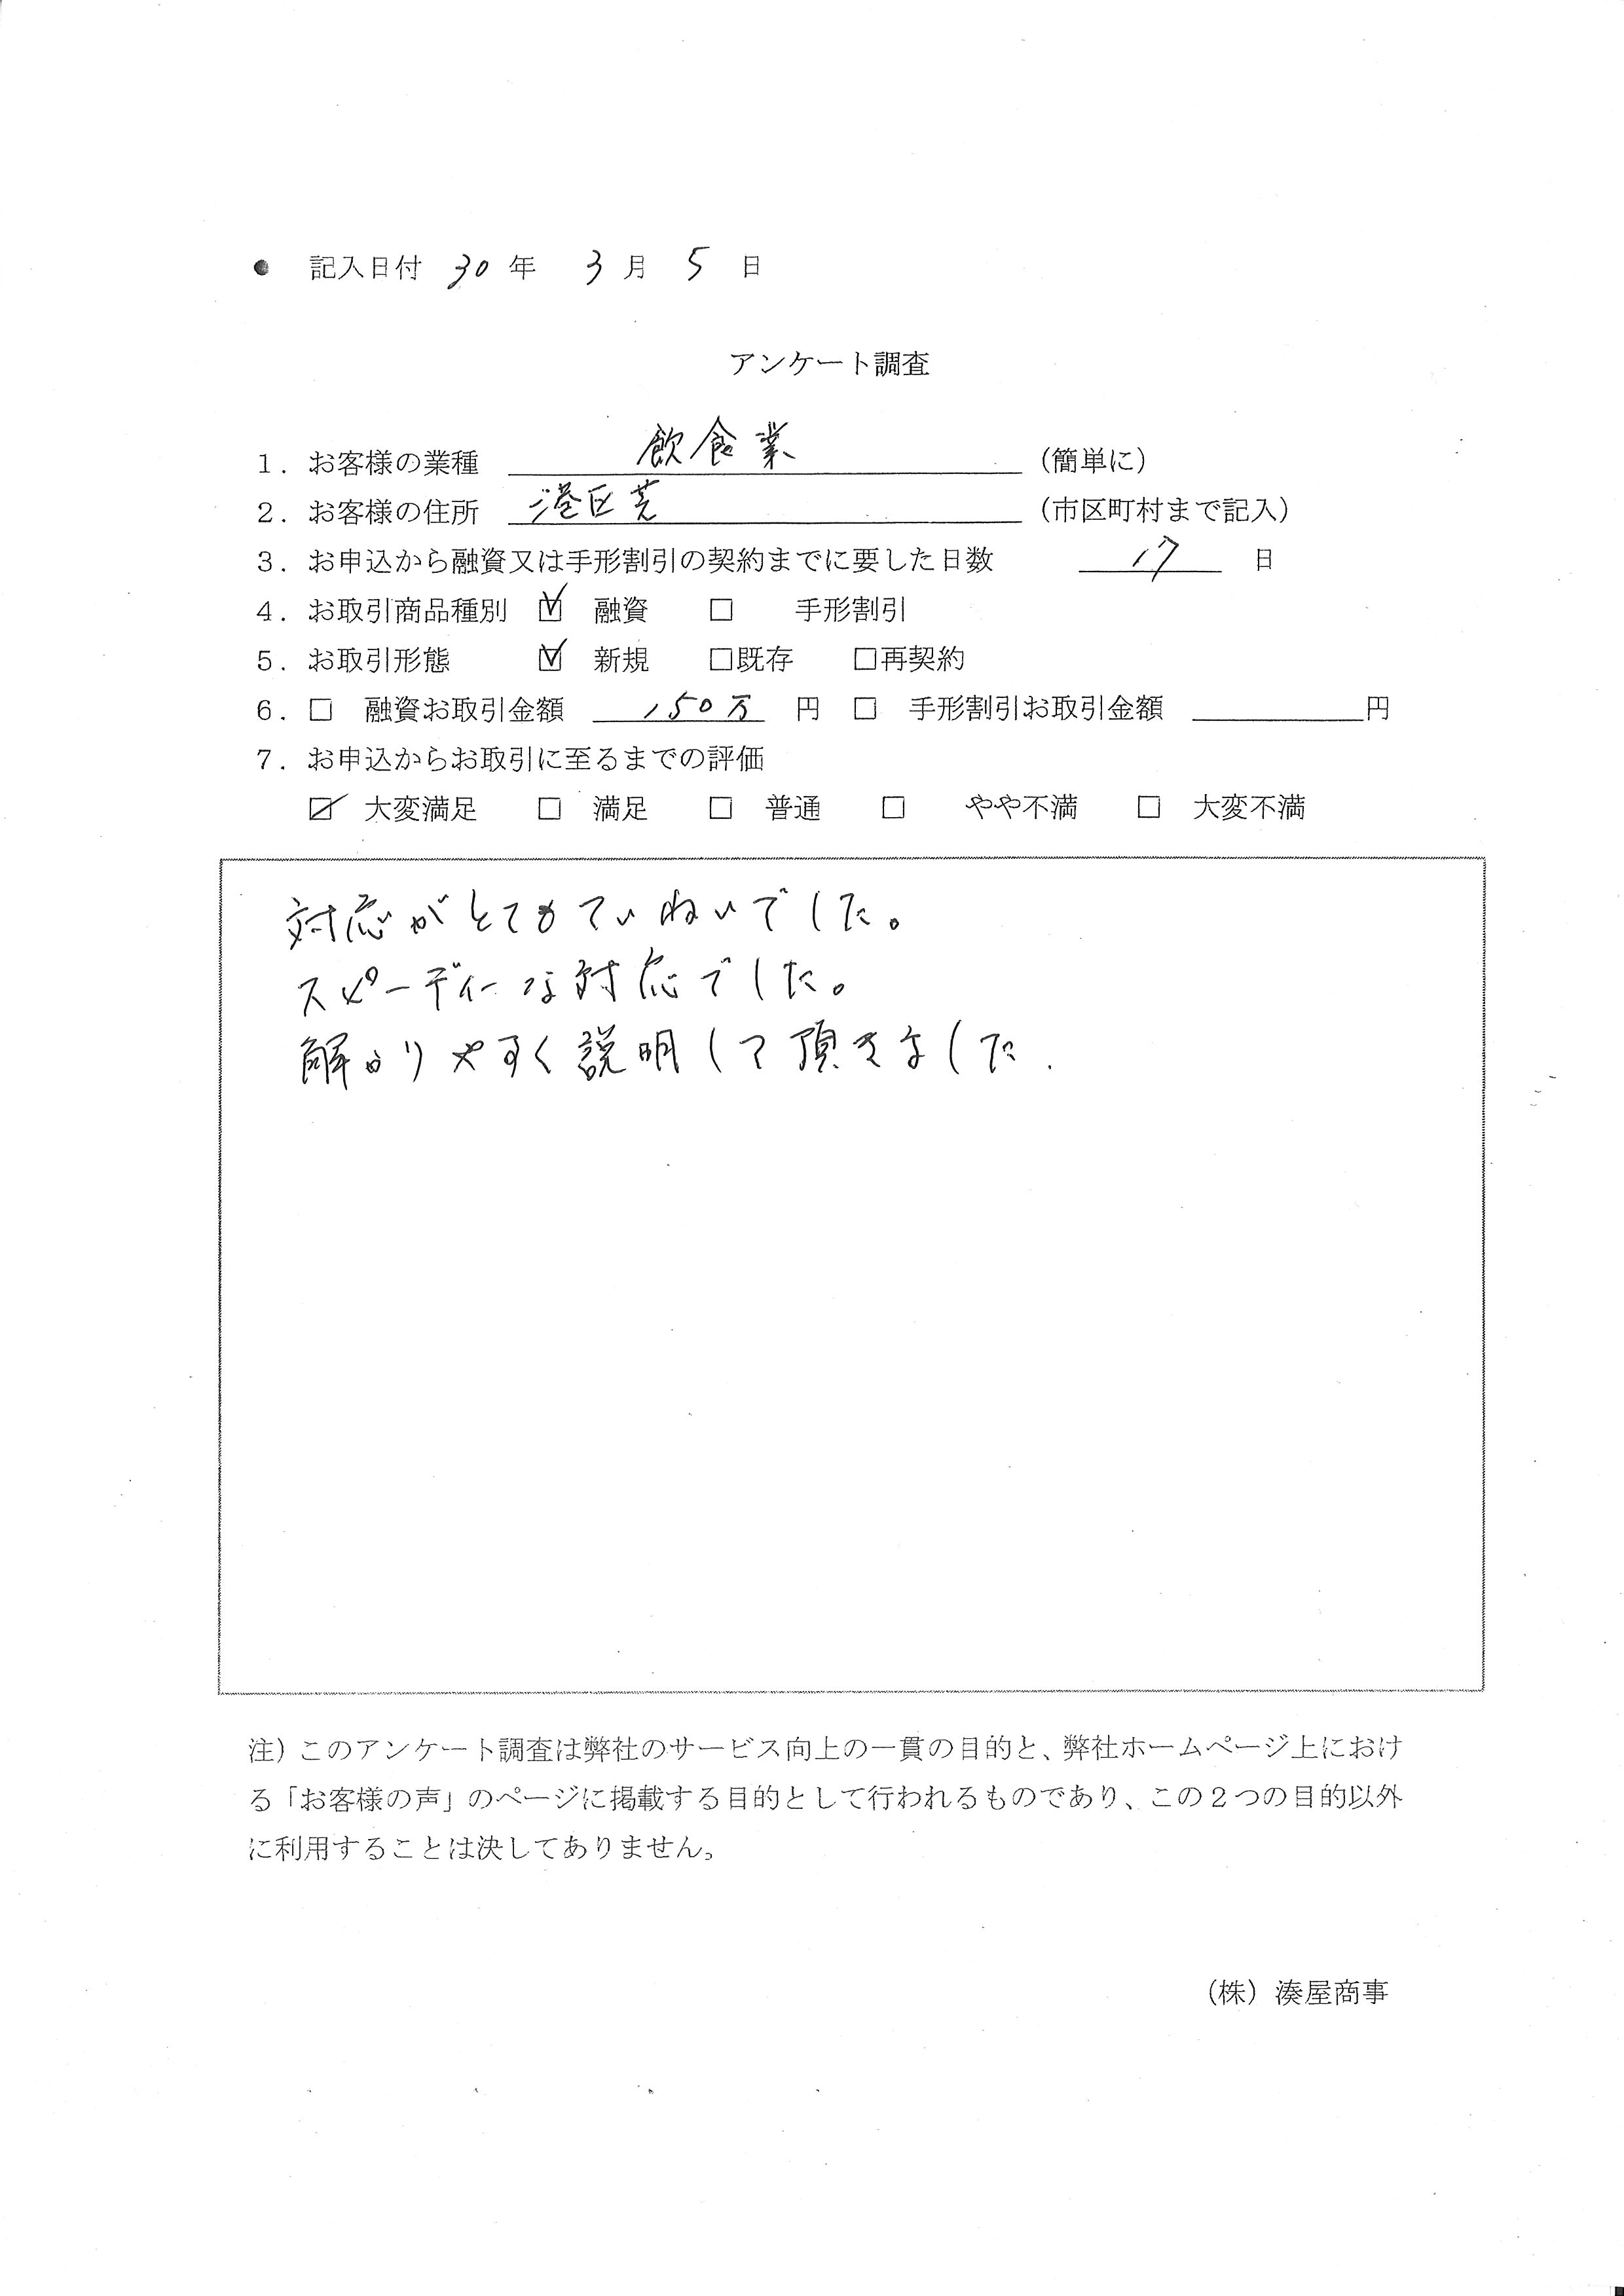 ● 記入日付 30 年 3 月 5 日
アンケート調査
1．お客様の業種 飲食業 （簡単に）
2．お客様の住所 港区芝 （市区町村まで記入）
3．お申込から融資又は手形割引の契約までに要した日数 17 日
4．お取引商品種別 ☑ 融資 □ 手形割引
5．お取引形態 ☑ 新規 □既存 □再契約
6．□ 融資お取引金額 150万 円 □ 手形割引お取引金額 円
7．お申込からお取引に至るまでの評価
☑ 大変満足 □ 満足 □ 普通 □ やや不満 □ 大変不満
対応がとてもていねいでした。
スピーディーな対応でした。
解かりやすく説明して頂きました.
注）このアンケート調査は弊社のサービス向上の一貫の目的と、弊社ホームページ上におけ
る「お客様の声」のページに掲載する目的として行われるものであり、この２つの目的以外
に利用することは決してありません。
（株）湊屋商事